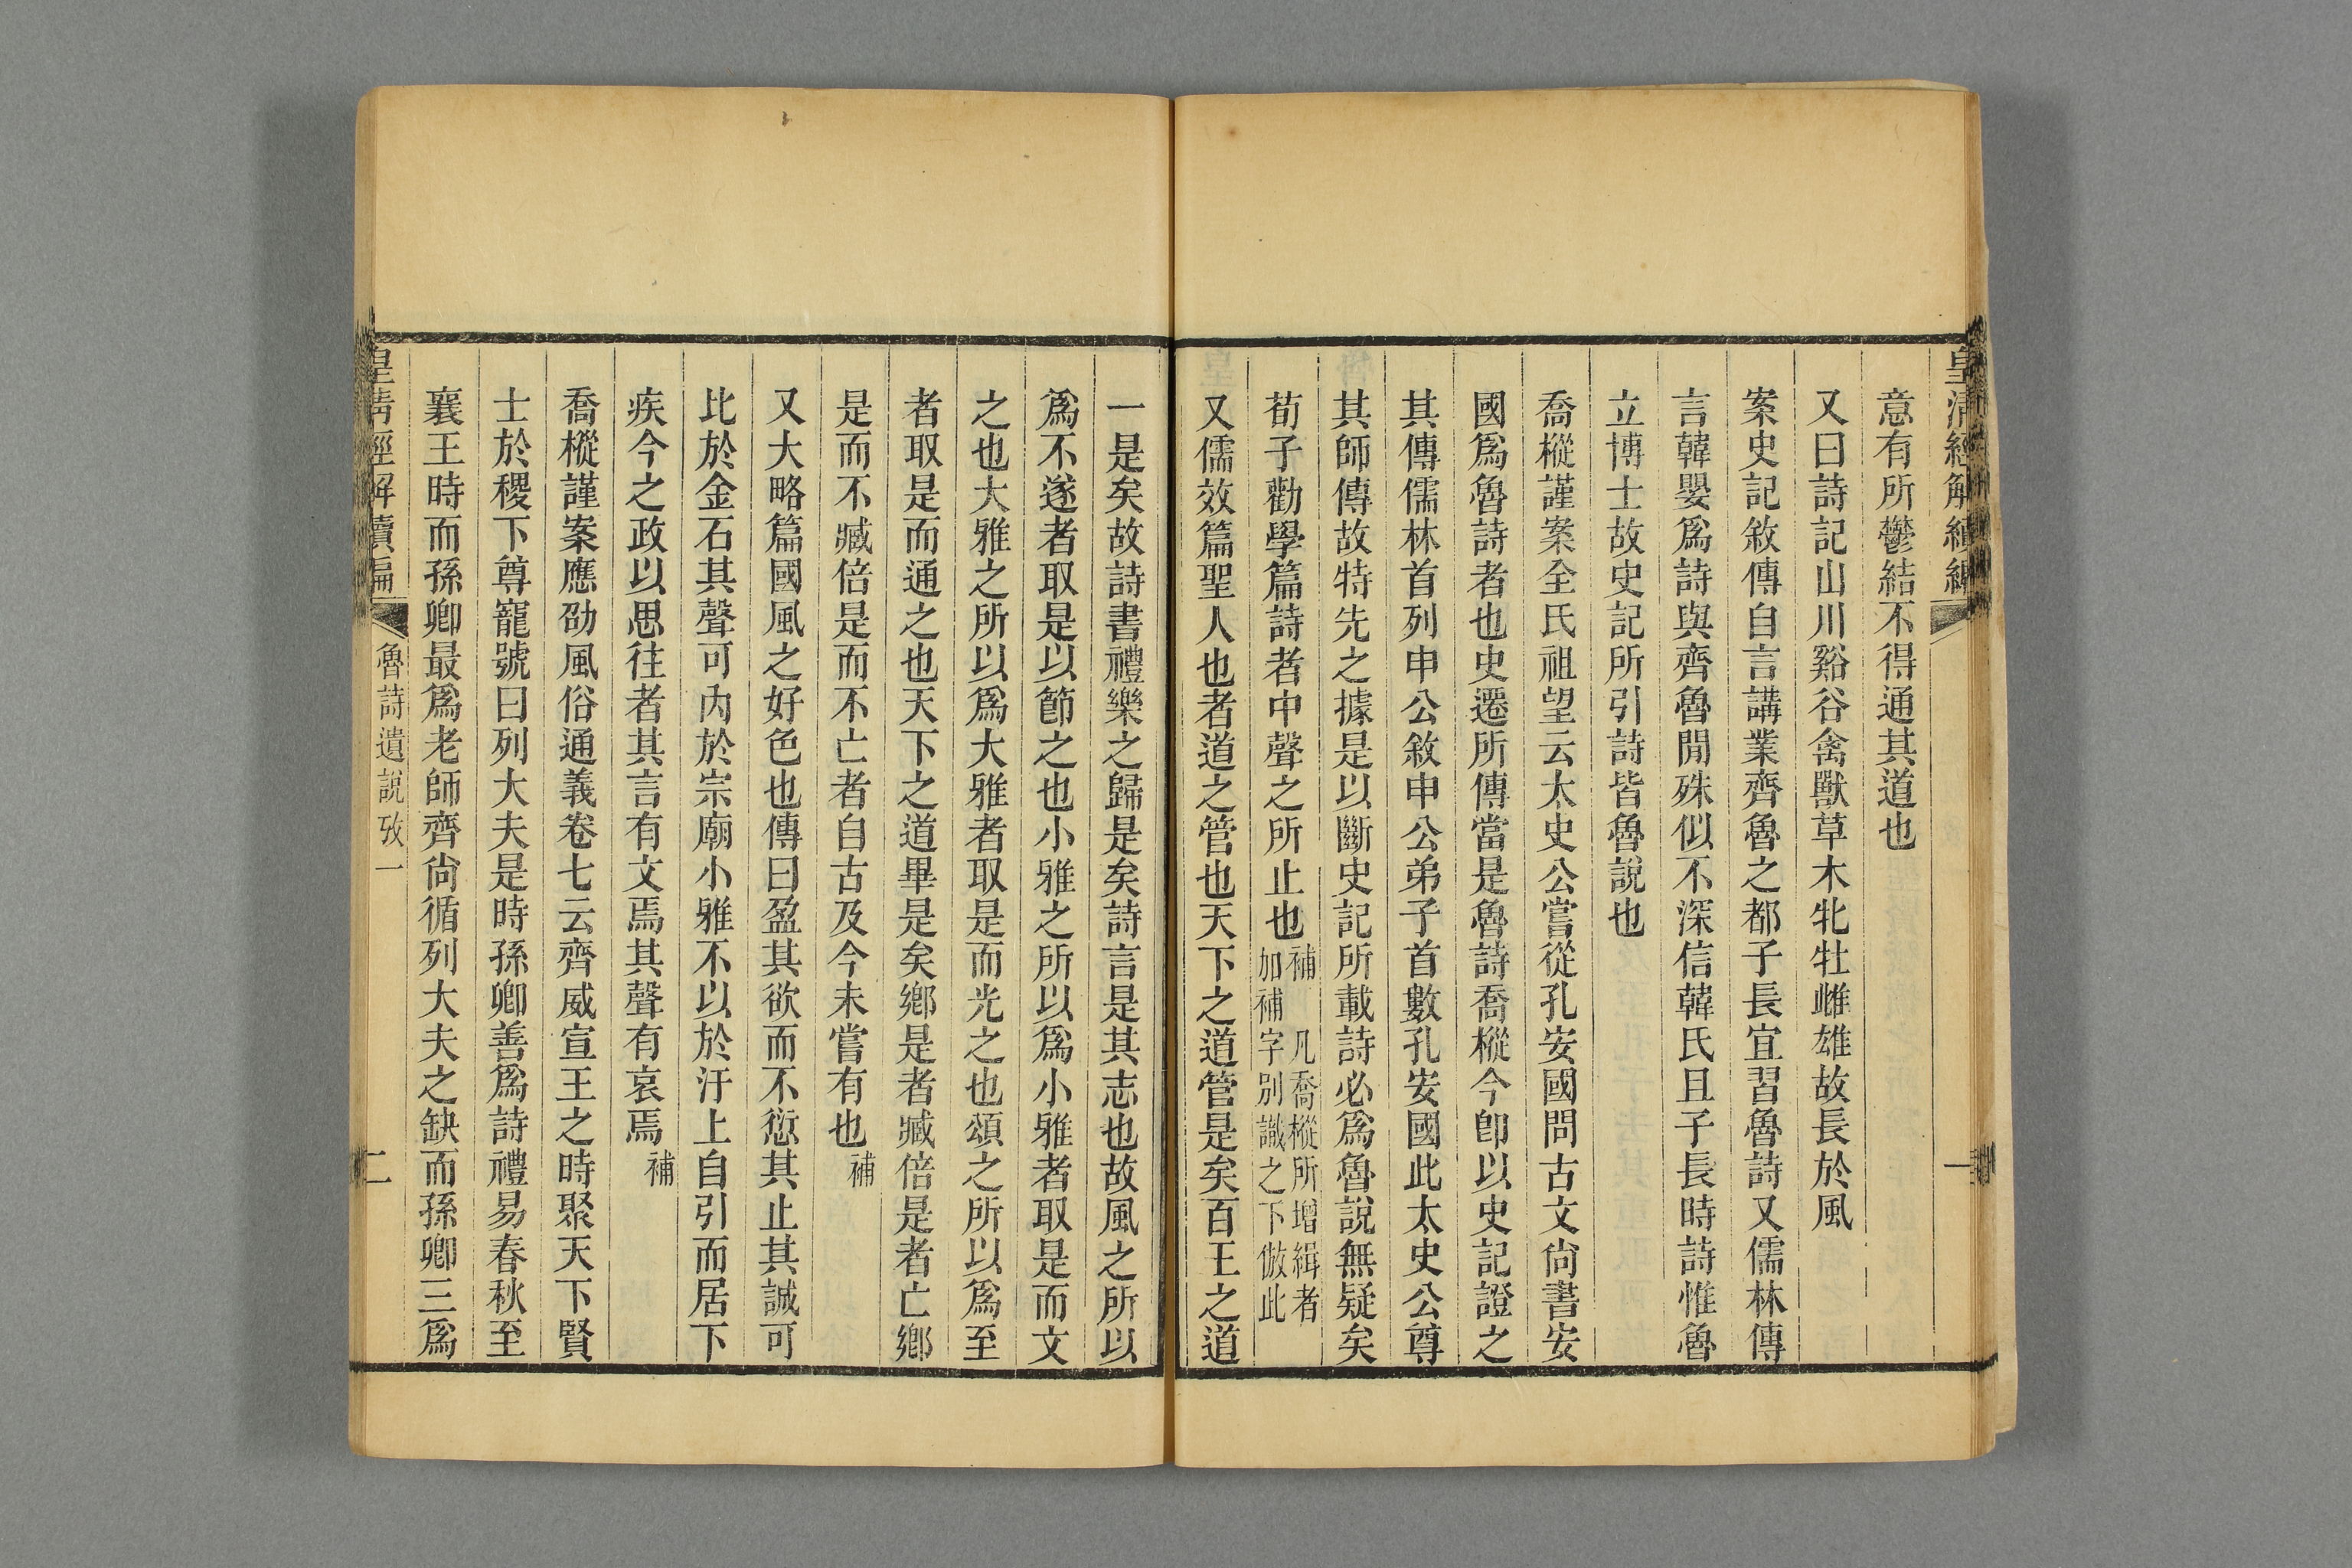 皇清經解續編
一
意有所鬱結不得通其道也
又曰詩記山川谿谷禽獸草木牝牡雌雄故長於風
案史記敘傳自言講業齊魯之都子長宜習魯詩又儒林傳
言韓嬰爲詩與齊魯閒殊似不深信韓氏且子長時詩惟魯
立博士故史記所引詩皆魯說也
喬樅謹案全氏祖望云太史公嘗從孔安國問古文尙書安
國爲魯詩者也史遷所傳當是魯詩喬樅今卽以史記證之
其傳儒林首列申公敘申公弟子首數孔安國此太史公尊
其師傳故特先之據是以斷史記所載詩必爲魯說無疑矣
荀子勸學篇詩者中聲之所止也補 凡喬樅所增緝者
加補字別識之下倣此
又儒效篇聖人也者道之管也天下之道管是矣百王之道
一是矣故詩書禮樂之歸是矣詩言是其志也故風之所以
爲不逐者取是以節之也小雅之所以爲小雅者取是而文
之也大雅之所以爲大雅者取是而光之也頌之所以爲至
者取是而通之也天下之道畢是矣鄉是者臧倍是者亡鄉
是而不臧倍是而不亡者自古及今未嘗有也補
又大略篇國風之好色也傳曰盈其欲而不愆其止其誠可
比於金石其聲可內於宗廟小雅不以於汙上自引而居下
疾今之政以思往者其言有文焉其聲有哀焉補
喬樅謹案應劭風俗通義卷七云齊威宣王之時聚天下賢
士於稷下尊寵號曰列大夫是時孫卿善爲詩禮易春秋至
襄王時而孫卿最爲老師齊尙循列大夫之缺而孫卿三爲
皇清經解續編
魯詩遺說攷一
二